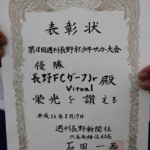 表彰状
第18回週刊長野杯少年サッカー大会
優勝
長野FCガーフJr 殿
Vitoal
栄光を讃える
平成26年8月17日
週刊長野新聞社